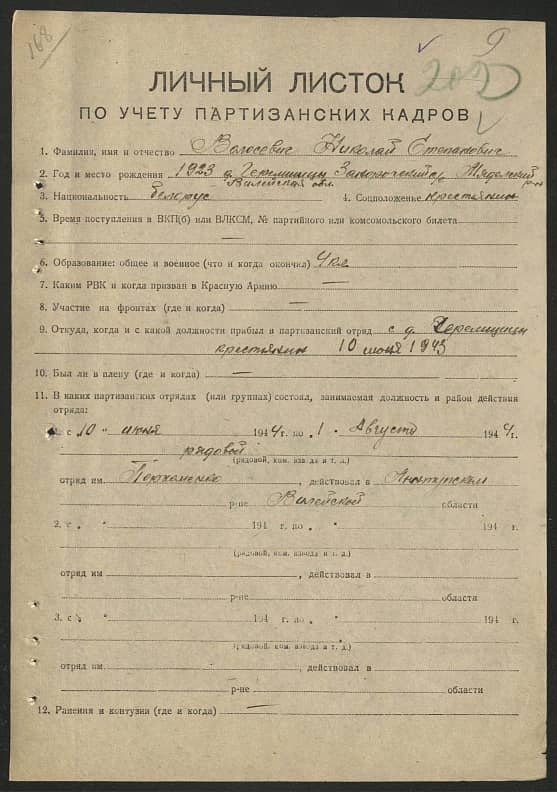 168
9
ЛИЧНЫЙ ЛИСТОК
ПО УЧЕТУ ПАРТИЗАНСКИХ КАДРОВ
1. Фамилия, имя и отчество Волосевич Николай Степанович
2. Год и место рождения 1923 д. Черемшицы Мядельский р-н
Вилейская обл.
3. Национальность белорус 4. Соцположение крестьянин
5. Время поступления в ВКП(б) или ВЛКСМ, № партийного или комсомольского билета
6. Образование: общее и военное (что и когда окончил) 4 кл
7. Каким РВК и когда призван в Красную Армию —
8. Участие на фронтах (где и когда) —
9. Откуда, когда и с какой должности прибыл в партизанский отряд с д. Черемшицы
крестьянин 10 июня 1943
10. Был ли в плену (где и когда) —
11. В каких партизанских отрядах (или группах) состоял, занимаемая должность и район действия
отряда:
с „10 “ июня 1944 г. по „1 “ Августа 1944 г.
рядовой
(рядовой, ком. взвода и т. д.)
отряд им Пархоменко, действовал в
р-не Вилейской области
2. с „ “ 194 г. по „ “ 194 г.
(рядовой, ком. взвода и т. д.)
отряд им , действовал в
р-не области
3. с „ “ 194 г. по „ “ 194 г.
(рядовой, ком. взвода и т. д.)
отряд им , действовал в
р-не области
12. Ранения и контузия (где и когда) —